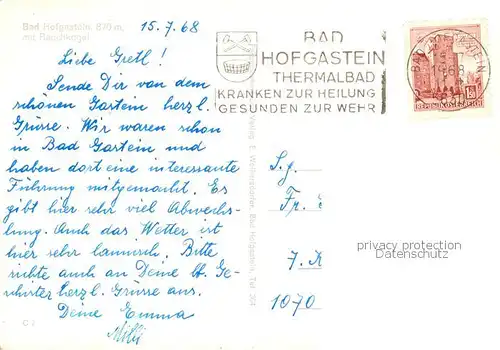 Bad Hofgastein, 870 m,
mit Rauchkogel
15.7.68
Liebe Gretl!
Sende Dir von dem
schönen Gastein herzl.
Grüsse. Wir waren schon
in Bad Gastein und
haben dort eine interessante
Führung mitgemacht. Es
gibt hier sehr viel Abwechs-
lung. Auch das Wetter ist
hier sehr launisch. Bitte
richte auch an Deine lb. Ge-
schwister herzl. Grüsse aus.
Deine Emma
BAD
HOFGASTEIN
THERMALBAD
KRANKEN ZUR HEILUNG
GESUNDEN ZUR WEHR
REPUBLIK ÖSTERREICH
S.g.
Fr.
7. K
1070
privacy protection
Datenschutz